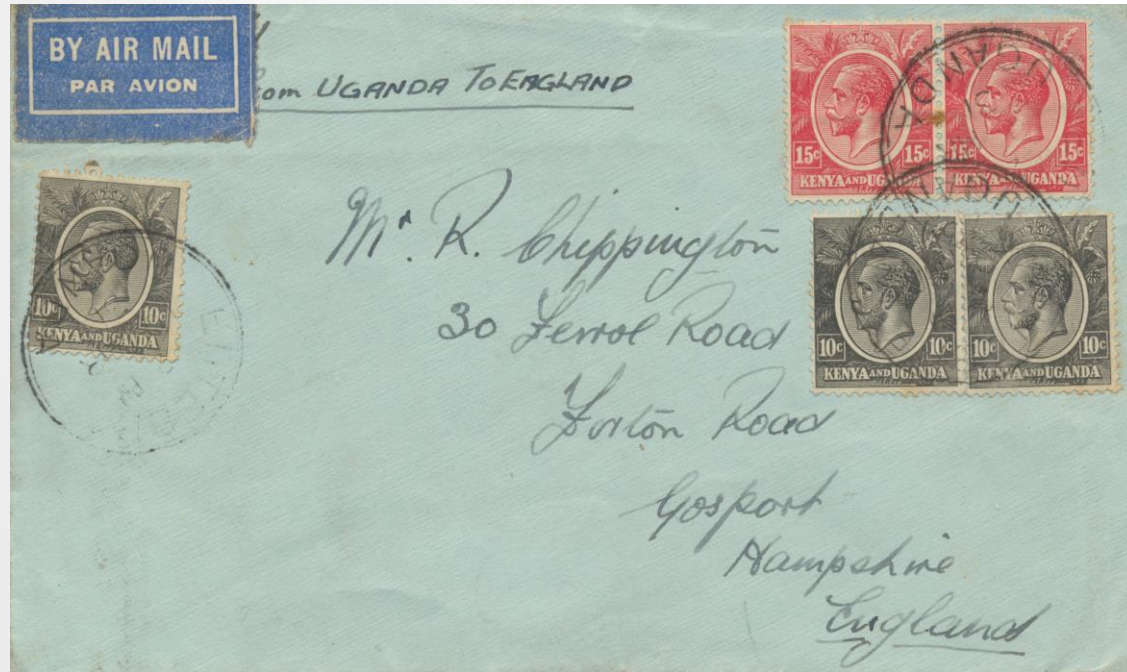 BY AIR MAIL
PAR AVION
from UGANDA TO ENGLAND
15c 15c 15c 15c
KENYA AND UGANDA KENYA AND UGANDA
UGANDA
UGANDA
10c 10c
KENYA AND UGANDA
10c 10c 10c 10c
KENYA AND UGANDA KENYA AND UGANDA
Mr. R. Chippington
30 Ferrol Road
Forton Road
Gosport
Hampshire
England